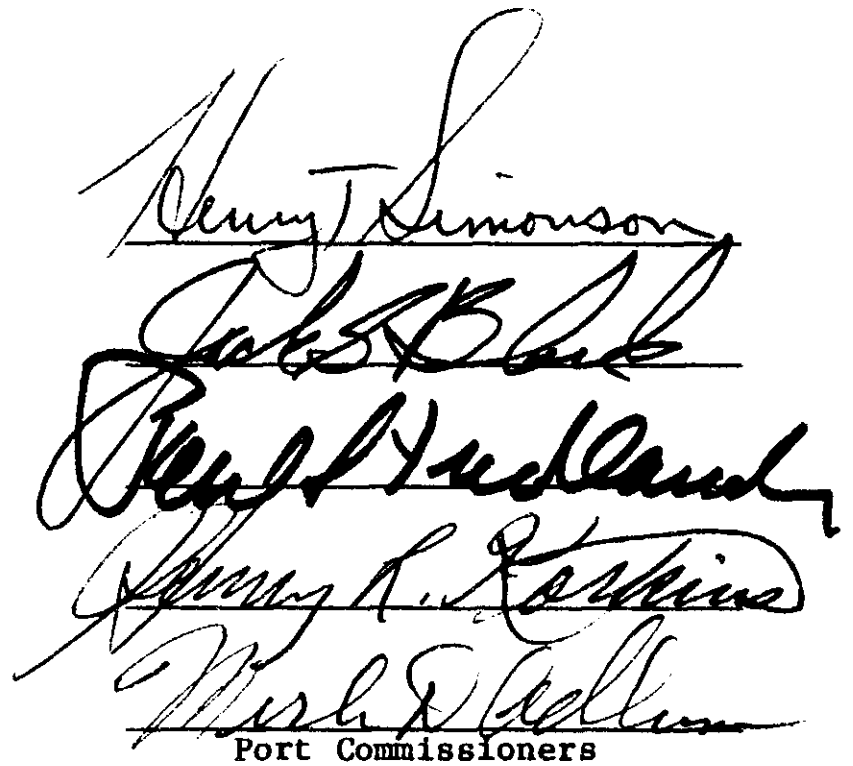 Henry T Simonson
Jack S Block
Paul S Friedland
Henry R. Kotkins
Merle D Adlum
Port Commissioners